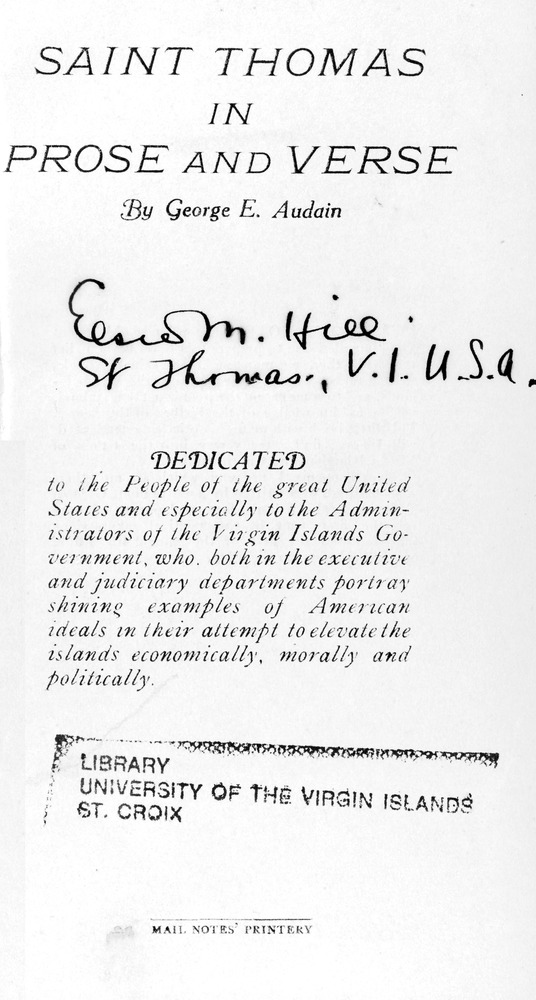 SAINT THOMAS
IN
PROSE AND VERSE
By George E. Audain
Elsie M. Hill.
St Thomas., V.I. U.S.A.
DEDICATED
to the People of the great United
States and especially to the Admin-
istrators of the Virgin Islands Go-
vernment, who. both in the executive
and judiciary departments portray
shining examples of American
ideals in their attempt to elevate the
islands economically, morally and
politically.
LIBRARY
UNIVERSITY OF THE VIRGIN ISLANDS
ST. CROIX
MAIL NOTES' PRINTERY